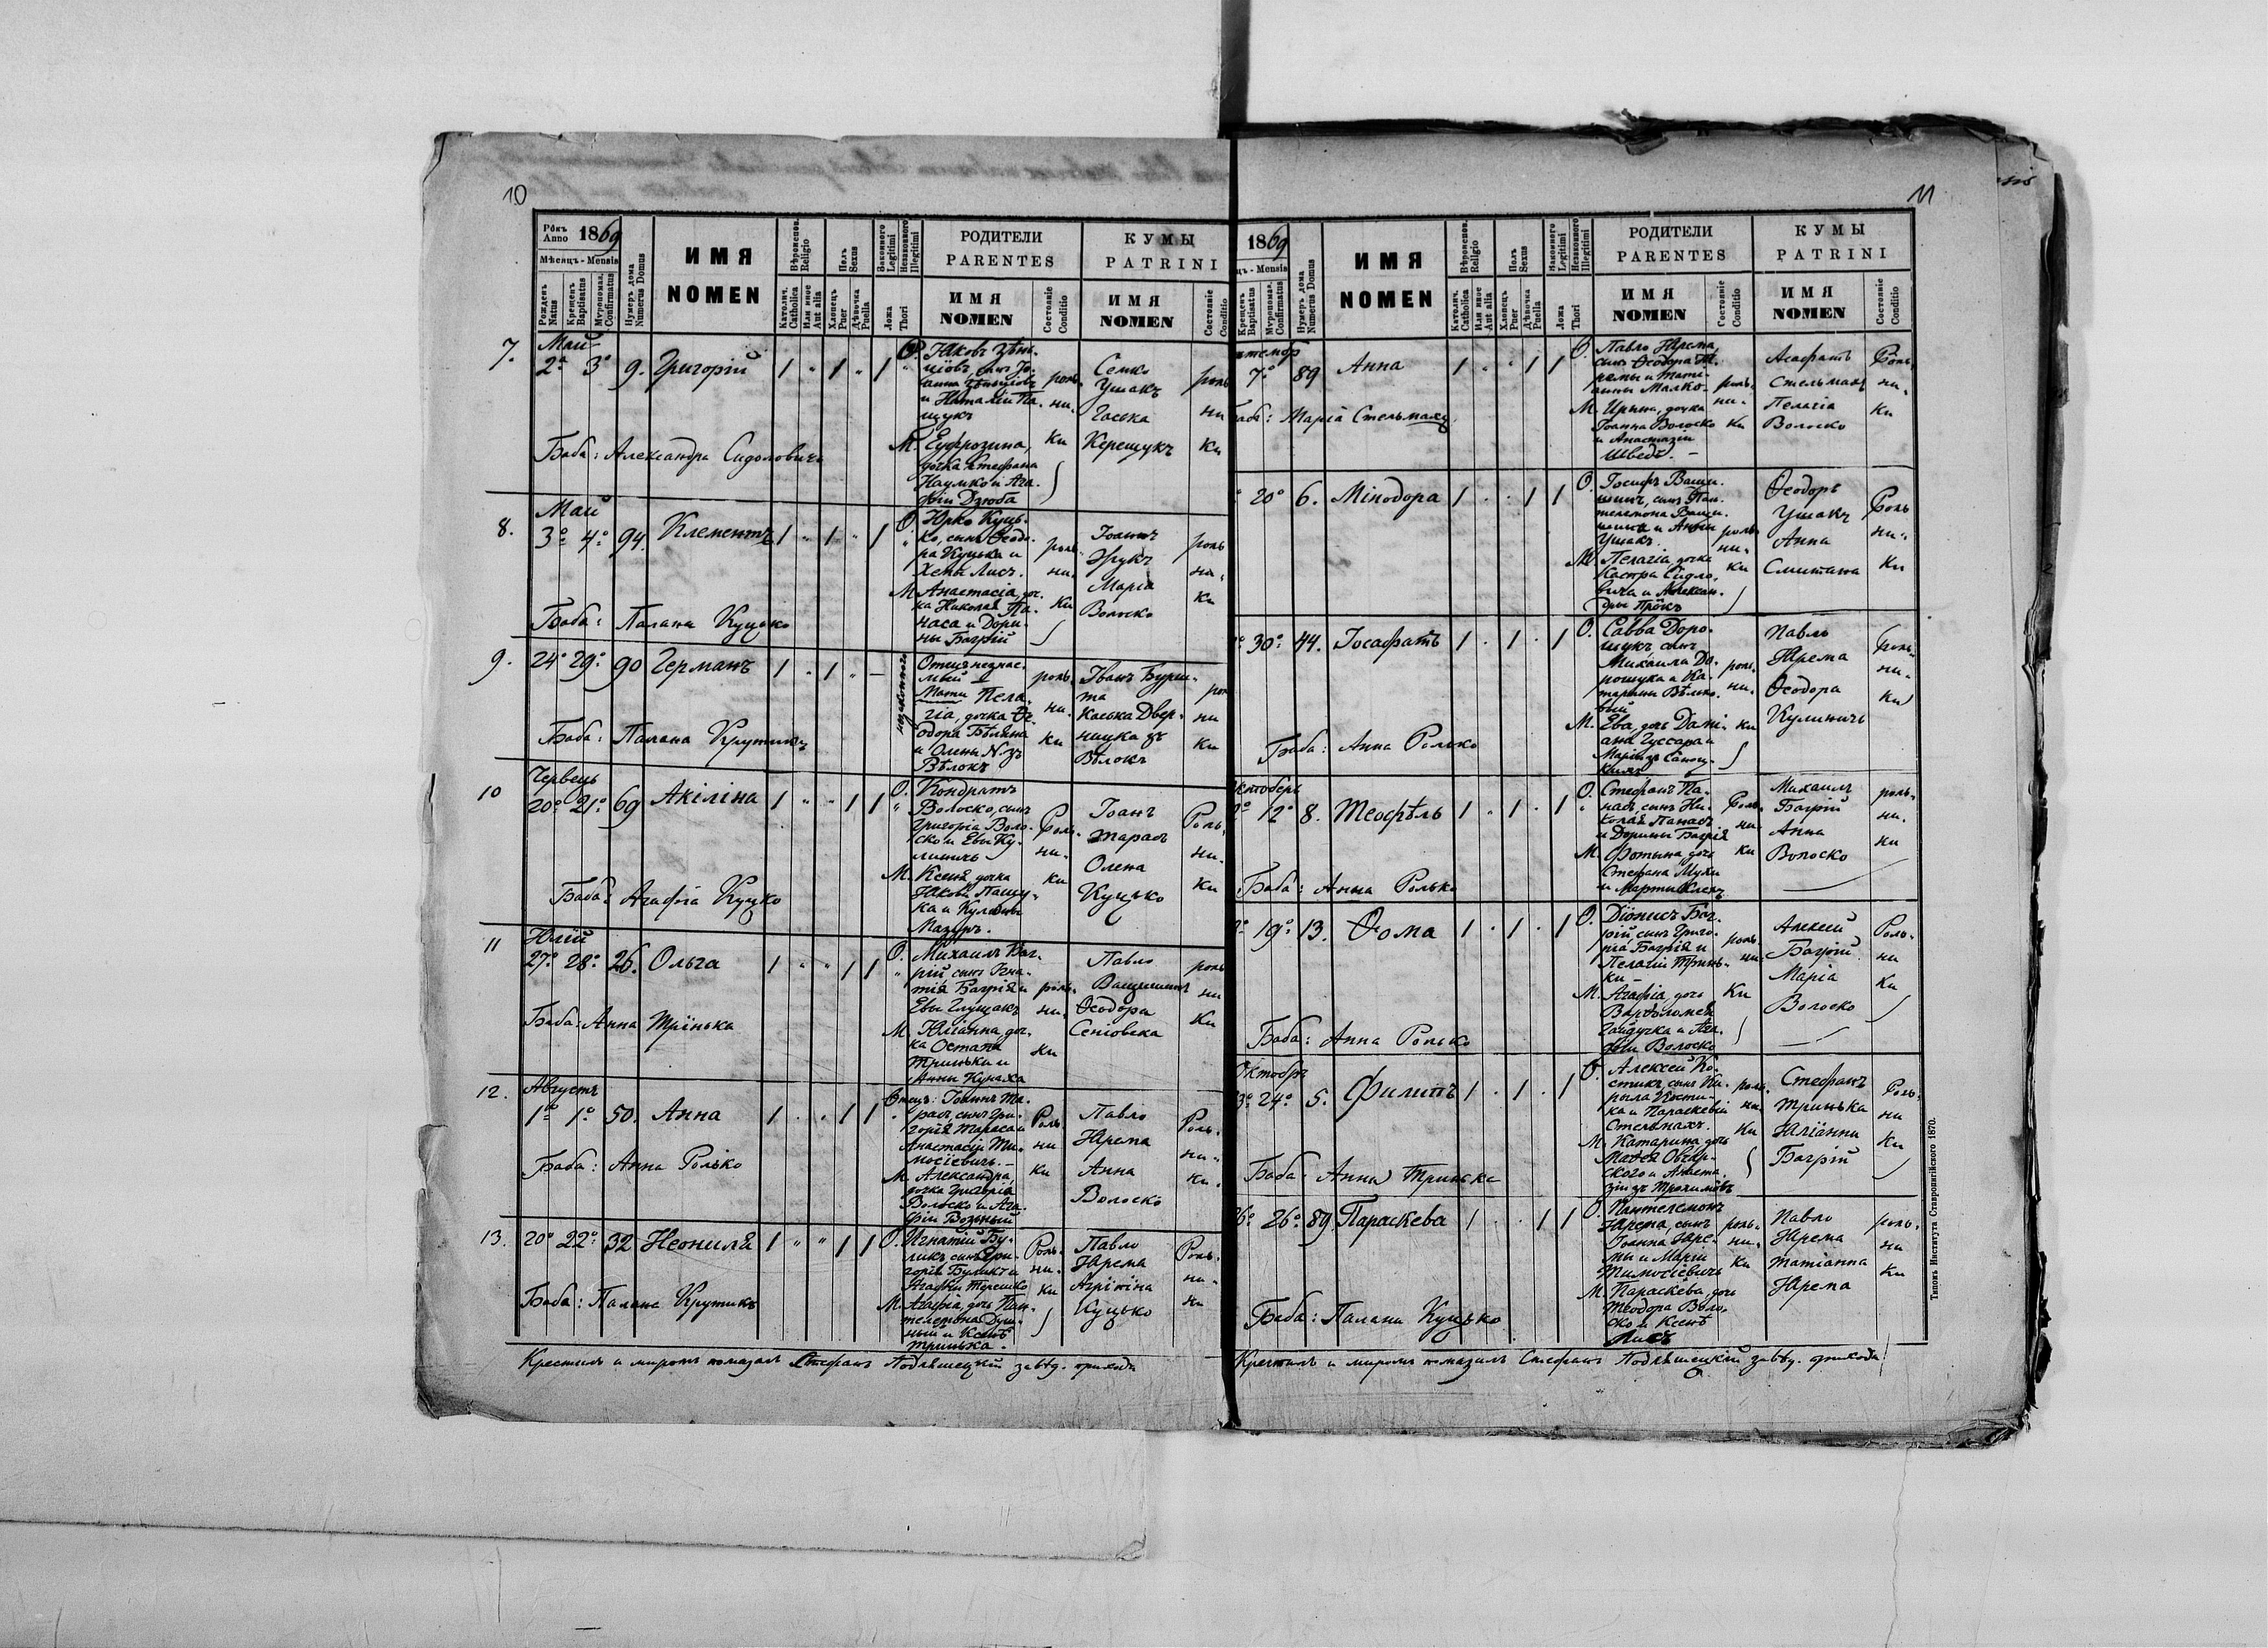 10
Рôкъ Anno 1869
Мѣсяцъ - Mensis
Рожденъ Natus
Крещенъ Baptisatus
Мѵропомаз. Confirmatus
Нумеръ дома Numerus Domus
ИМЯ
NOMEN
Вѣроиспов. Religio
Католич. Catholica
Или иное Aut alia
Полъ Sexus
Хлопець Puer
Дѣвочка Puella
Законного Legitimi
Незаконного Illegitimi
Ложа Thori
РОДИТЕЛИ
PARENTES
ИМЯ
NOMEN
Состояніе Conditio
КУМЫ
PATRINI
ИМЯ
NOMEN
Состояніе Conditio
7.
Май
2° 3° 9. Григорій 1 " 1 " 1
О. Яковъ
и Наталіи Па-
щукъ
М. Еуфрозина,
дочка Стефана
Наумко и Ага-
фіи Дзюба
роль-
ни-
ки
Семко
Ушакъ
Гаська
Керещукъ
роль
ни
ки
Баба: Александра Сидоловичъ
8.
Май
3° 4° 94. Климентъ 1 " 1 " 1
О. Юрко Куць-
ко, сынъ Ѳеодо-
ра Куцька и
Хени Лисъ.
М. Анастасія, доч-
ка Николая Па-
наса и Дори-
ны Багрій
роль
ни-
ки
Іоаннъ
Жукъ
Марія
Волоско
роль
ни-
ки
Баба: Палагна Куцько
9. 24° 29° 90 Германъ 1 " 1 " —
незаконного
Отецъ неизвѣс-
мый —
Мати Пела-
гія, дочка Ѳе-
одора Бѣляна
и Олены N зъ
Вѣлокъ
роль-
ни-
ки
Іванъ Бурш-
та
Каська Двер-
ницка зъ
Вѣлокъ
роль
ни
ки
Баба: Палагна Крутикъ
10
Червець
20° 21° 69 Акіліна 1 " " 1 1
О. Кондратъ
Волоско, сынъ
Григорія Воло-
ско и Евы Ку-
линичъ
М. Ксеня, дочка
Якова Пащу-
ка и Кулины
Мазуръ.
Роль-
ни-
ки
Іоанъ
Тарасъ
Олена
Куцько
Роль-
ни-
ки
Баба: Агафія Куцко
11
Юлій
27° 28° 26. Ольга 1 " " 1 1
О. Михаилъ Баг-
рій, сынъ Игна-
тія Багрія и
Евы Глущакъ
М. Юліанна, доч-
ка Остапа
Тринька и
Анны Кунаха
роль-
ни-
ки
Павло
Ващишинъ
Ѳеодора
Сеньовска
роль
ни
ки
Баба: Анна Трінька
12.
Августъ
1° 1° 50. Анна 1 . " 1 1
Отецъ: Іоаннъ Та-
расъ, сынъ Гри-
горія Тараса и
Анастасіи Ти-
мосіевичъ. —
М. Александра,
дочка Григорія
Волоско и Ага-
фіи Возьный
Роль
ни
ки
Павло
Ярема
Анна
Волоско
Роль-
ни-
ки-
Баба: Анна Ролько
13. 20° 22° 32 Неониля 1 " " 1 1
О. Игнатій Бу-
ликъ, сынъ Гри-
горія Буликъ и
Агафіи Терешко
М. Агафія, дочь Пан-
телемона Душ-
ный и Ксенѣ
Тринька.
Роль-
ни-
ки
Павло
Ярема
Агріпіна
Куцько
Роль-
ни-
ни
Баба: Палагна Крутикъ
Крестилъ и миромъ помазалъ Стефанъ Подляшецкій завѣд. прихода
11
1869
цъ - Mensis
Крещенъ Baptisatus
Мѵропомаз. Confirmatus
Нумеръ дома Numerus Domus
ИМЯ
NOMEN
Вѣроиспов. Religio
Католич. Catholica
Или иное Aut alia
Полъ Sexus
Хлопець Puer
Дѣвочка Puella
Законного Legitimi
Незаконного Illegitimi
Ложа Thori
РОДИТЕЛИ
PARENTES
ИМЯ
NOMEN
Состояніе Conditio
КУМЫ
PATRINI
ИМЯ
NOMEN
Состояніе Conditio
птембр
7° 89 Анна 1 . . 1 1
О. Павло Ярема,
сынъ Ѳеодора Я-
ремы и Тати-
анны Малко-
М. Ирина, дочка
Іоанна Волоско
и Анастазіи
Шведъ. —
роль-
ни-
ки
Асафатъ
Стельмахъ
Пелагія
Волоско
Роль-
ни-
ки
аба: Марія Стельмахъ
20° 6. Мінодора 1 . . 1 1
О. Іосифъ Ващи-
шинъ, сынъ Пан-
телемона Ващи-
шина и Анны
Ушакъ
М. Пелагія, дочка
Каспра Сидло-
вича и Алексан-
дры Прокъ
роль
ни-
ки
Ѳеодоръ
Ушакъ
Анна
Смитана
Роль
ни-
ки
30° 44. Іосафатъ 1 . 1 . 1
О. Савва Доро-
щукъ, сынъ
Михаила До-
рощука и Ка-
тарины Вѣлко-
вій
М. Ева, дочь Дамі-
ана Гуссара и
Маріи зъ
роль-
ни-
ки
Павло
Ярема
Ѳеодора
Кулиничъ
Роль-
ни-
ки
Баба: Анна Ролько
ктоберь
12° 8. Теофѣль 1 . 1 . 1
О. Стефанъ Па-
насъ, сынъ Ни-
колая Панасъ
и Дорины Багрія
М. Фотына, дочь
Стефана Мухи
и Марты
Роль-
ни-
ки
Михаилъ
Багрій
Анна
Волоско
роль-
ни-
ки
Баба: Анна Ролько
19° 13. Ѳома 1 . 1 . 1
О. Діонисъ Баг-
рій, сынъ Григо-
рія Багрія и
Пелагіи Тринь-
ки —
М. Агафія, дочь
Варѳоломея
Гайдучка и Ага-
фіи Волоско
роль-
ни-
ки
Алексій
Багрій
Марія
Волоско
Роль-
ни
ки
Баба: Анна Ролько
Октобрь
24° 5. Филипъ 1 . 1 . 1
О. Алексей Ко-
стикъ, сынъ Ки-
рыла Кости-
ка и Параскевіи
Стельмахъ.
М. Катарина, дочь
Матея Овчар-
ского и Анаста-
зіи зъ Трохимовъ
роль-
ни-
ки
Стефанъ
Тринька
Юліанни
Багрій
Роль-
ни
ки
Баба: Анна Тринька
26° 26° 89. Параскева 1 . . 1 1
О. Пантелемонъ
Ярема, сынъ
Іоанна Яре-
мы и Маріи
Тимосіевичъ
М. Параскева, дочь
Теодора Воло-
ско и Ксенѣ
Лисъ
роль-
ни-
ки
Павло
Ярема
Татіанна
Ярема
роль-
ни
ки
Баба: Палагна Куцько
Крестилъ и миромъ помазалъ Стефанъ Подляшецкій завѣд. прихода
Типомъ Института Ставропигійского 1870.